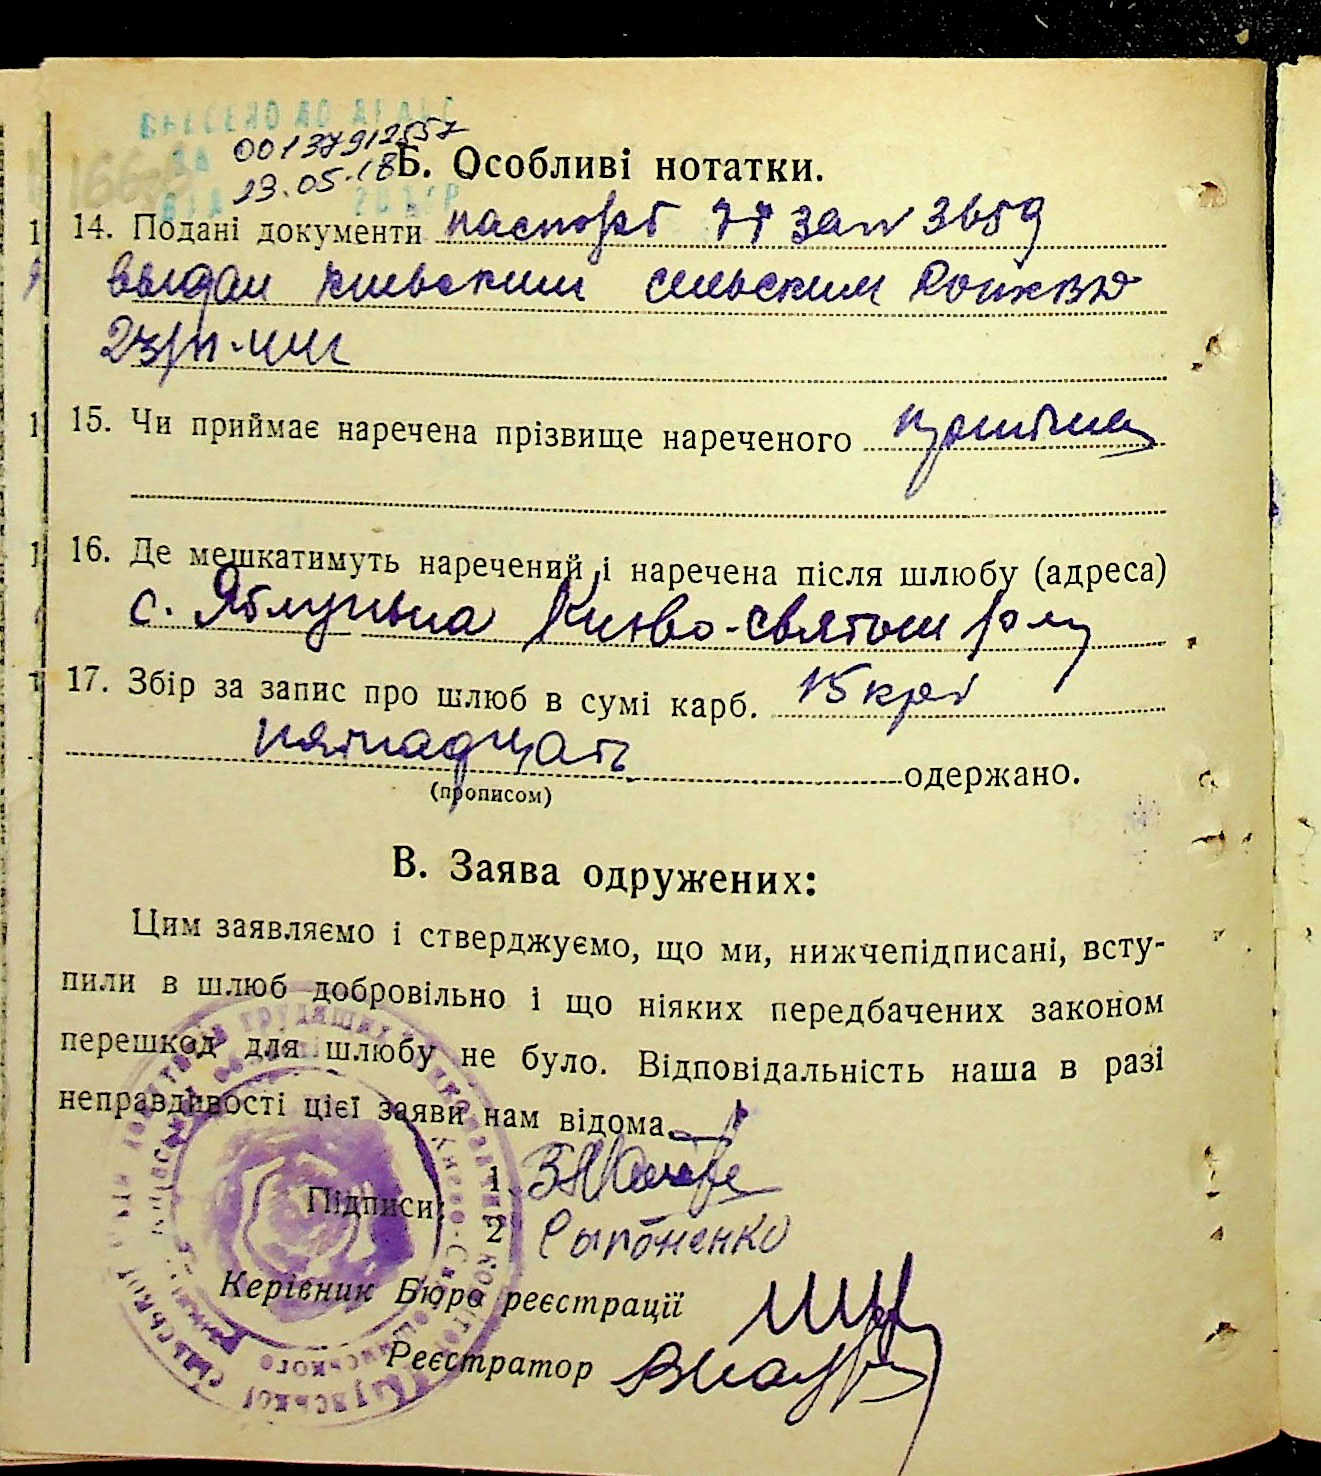 ВНЕСЕНО ДО ДРАЦС
00137912557
ЗА
23.05.18
Б. Особливі нотатки.
14. Подані документи паспорт 3659
выдан сельским
15. Чи приймає наречена прізвище нареченого
16. Де мешкатимуть наречений і наречена після шлюбу (адреса)
с. Яблунька Киево-святош р-ну
17. Збір за запис про шлюб в сумі карб. 15 крб
пятнадцать одержано.
(прописом)
В. Заява одружених:
Цим заявляємо і стверджуємо, що ми, нижчепідписані, всту-
пили в шлюб добровільно і що ніяких передбачених законом
перешкод для шлюбу не було. Відповідальність наша в разі
неправдивості цієї заяви нам відома.
Підписи: 1
2
Керівник Бюро реєстрації
Реєстратор